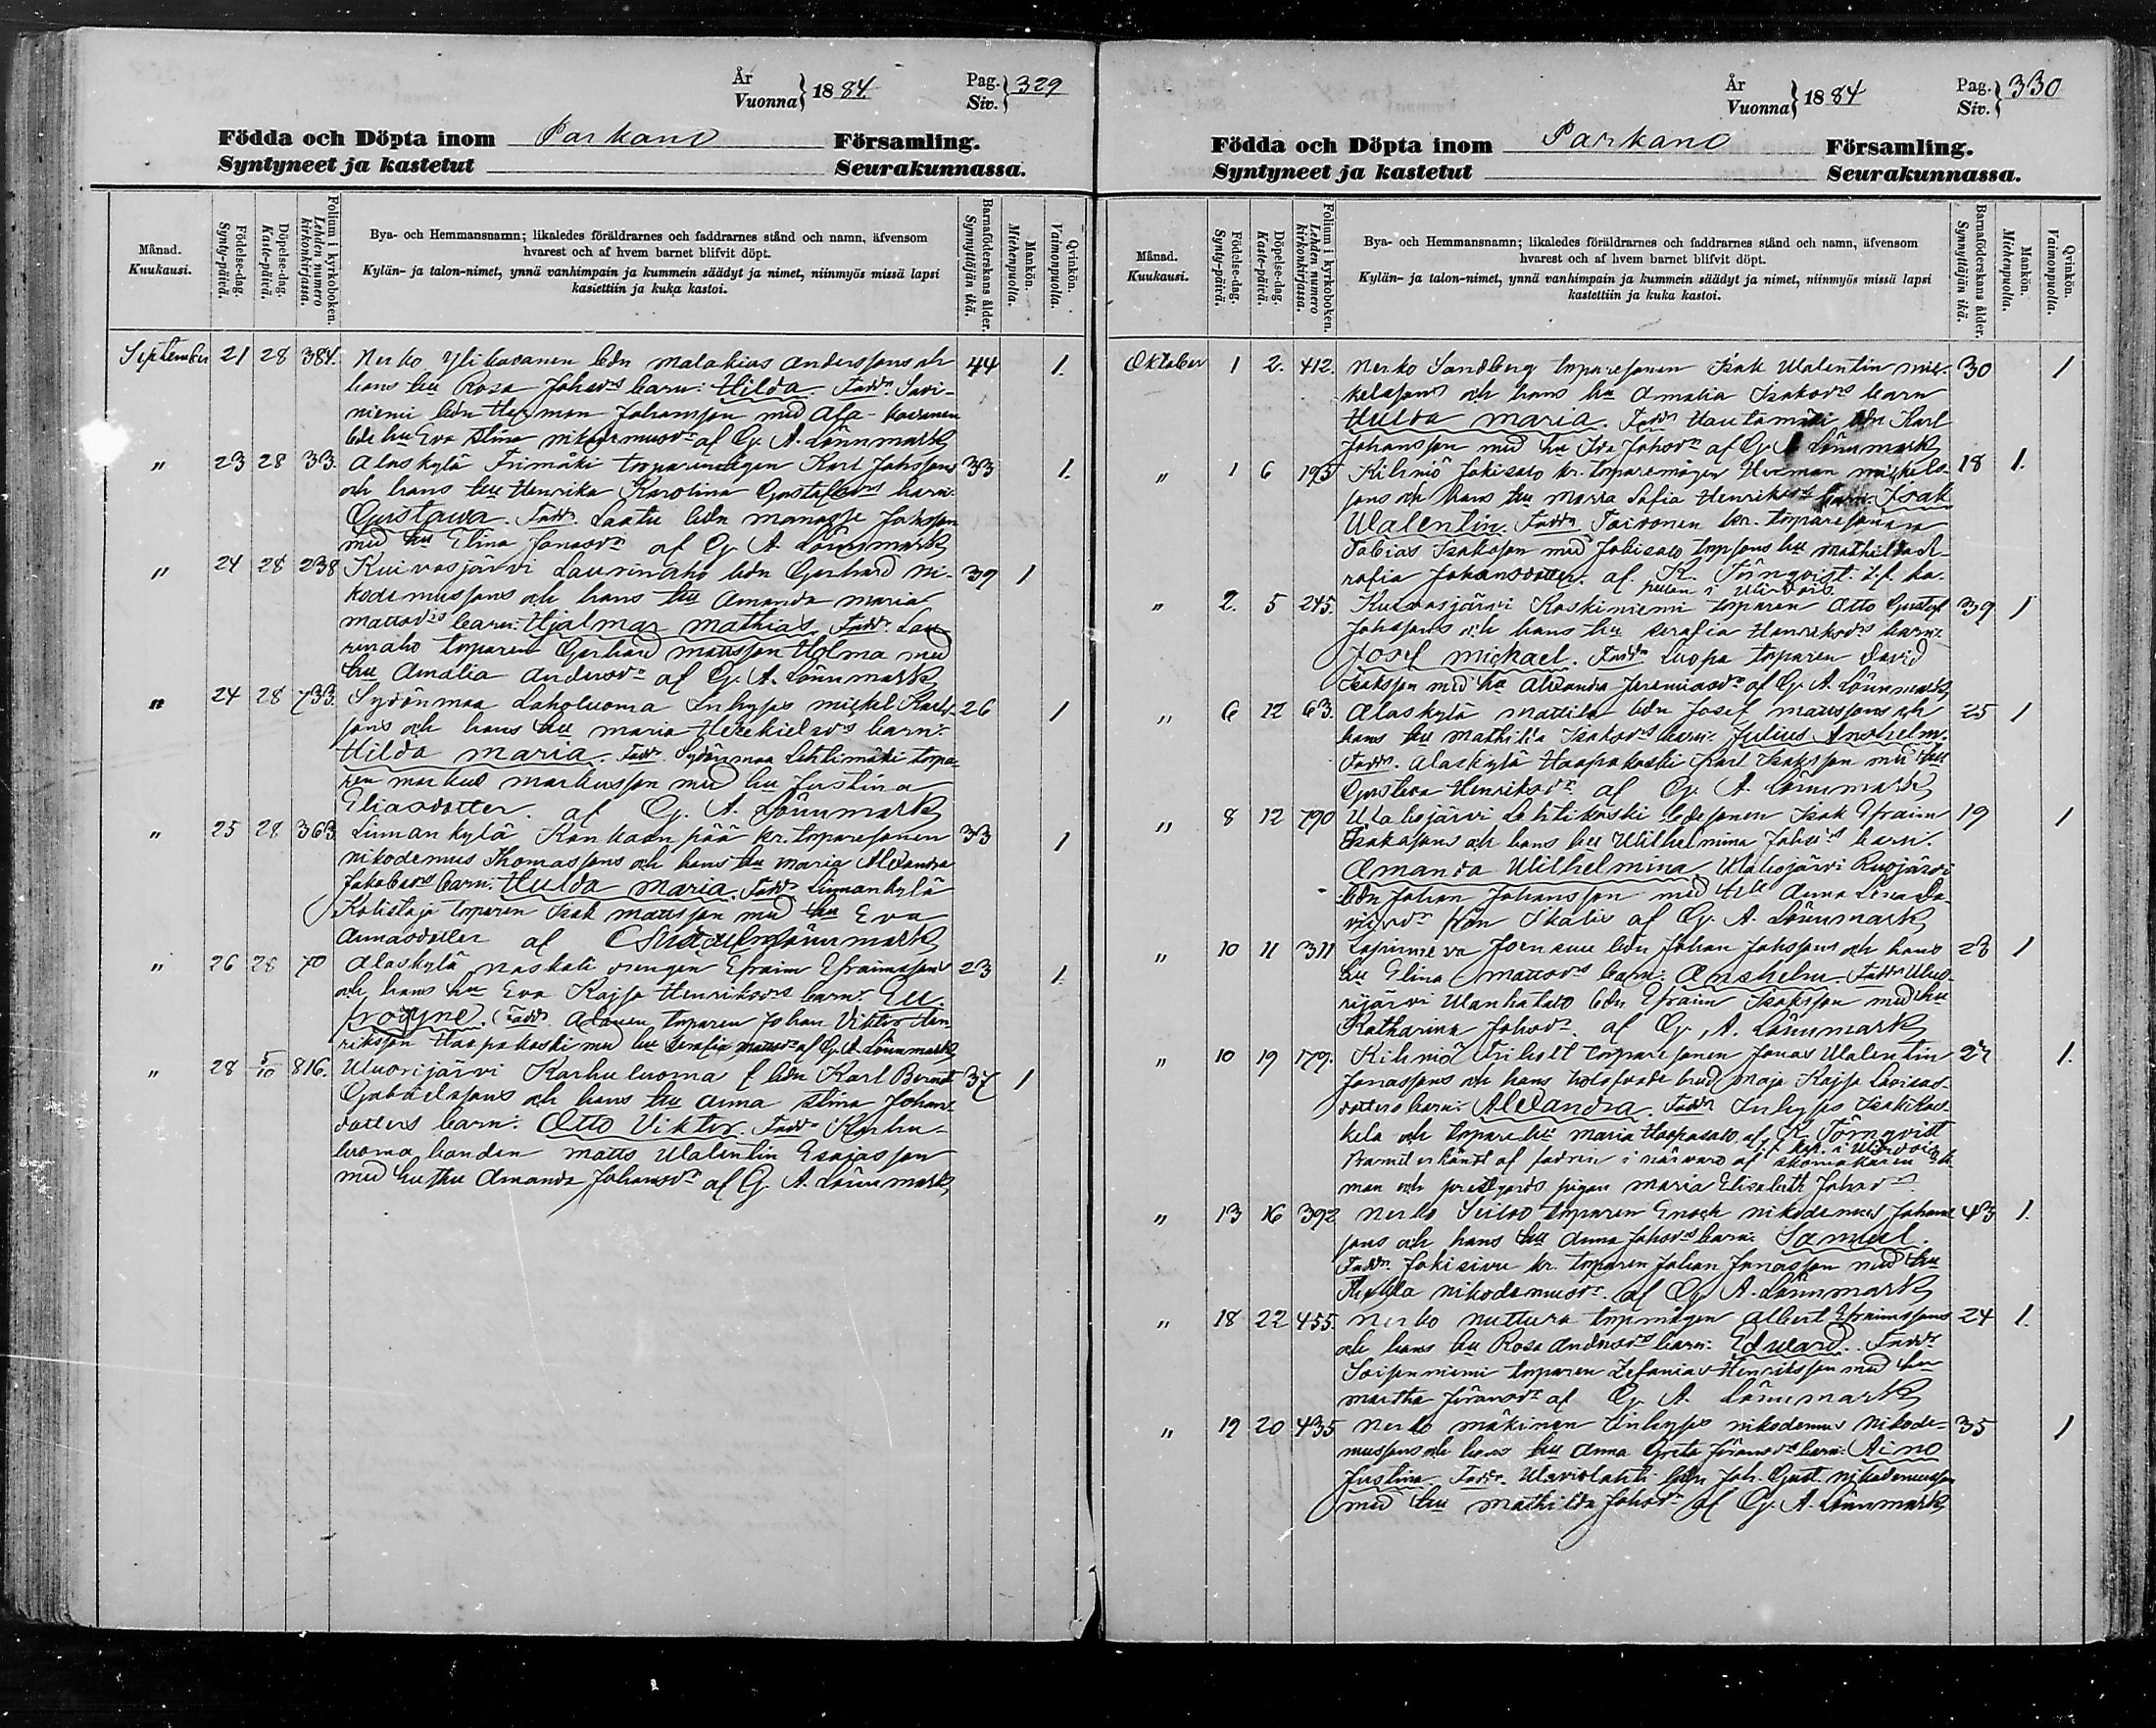 År
Vuonna } 1884 Pag.
Siv. } 329
Födda och Döpta inom Parkano Församling.
Syntyneet ja kastetut Seurakunnassa.
Månad.
Kuukausi.
Födelse-dag.
Synty-päivä.
Döpelse-dag.
Kaste-päivä.
Folium i kyrkoboken.
Lehden numero
kirkonkirjassa.
Bya- och Hemmansnamn; likaledes föräldrarnes och faddrarnes stånd och namn, äfvensom
hvarest och af hvem barnet blifvit döpt.
Kylän- ja talon-nimet, ynnä vanhimpain ja kummein säädyt ja nimet, niinmyös missä lapsi
kastettiin ja kuka kastoi.
Barnaföderskans ålder.
Synnyttäjän ikä.
Mankön.
Miehenpuolta.
Qvinkön.
Vaimonpuolta.
September 21 28 384. Nerko Ylikovanen bdn Malakias Anderssons och 44 1.
hans hu Rosa Johsdrs barn: Hilda. Faddr. Savi-
niemi bdn Herman Johansson med Ala-kovanen
bde hu Eva Stina Nikodemusdr af G. A. Lönnmark
" 23 28 33. Alaskylä Trimäki torparemågen Karl Johssons 33 1.
och hans hu Henrika Karolina Gustafsdrs barn:
Gustava. Faddr. Laatu bdn Manasse Johsson
med hu Elina Jonasdr af G. A. Lönnmark
" 24 28 238 Kuivasjärvi Laurinaho bdn Gerhard Ni- 39 1
kodemussons och hans hu Amanda Maria
Mattsdrs barn: Hjalmar Mathias. Faddr. Lau-
rinaho torparen Gerhard Mattsson Holma med
hu Amalia Andersdr af G. A. Lönnmark
" 24 28 733. Sydänmaa Laholuoma Inhyses Mickel Karls- 26 1
sons och hans hu Maria Hezekielsdrs barn:
Hilda Maria. Faddr. Sydänmaa Lehtimäki torpa-
ren Markus Markusson med hu Justina
Eliasdotter. af G. A. Lönnmark
" 25 28 363 Linnankylä Kankaanpää kr. torparesonen 33 1
Nikodemus Thomassons och hans hu Maria Alexandra
Jakobsdrs barn: Hulda Maria. Faddr Linnankylä
Kotistaja torparen Isak Mattsson med hu Eva
Annasdotter af Lönnmark
" 26 28 70 Alaskylä Raskali drengen Efraim Efraimssons 23 1.
och hans hu Eva Kajsa Henriksdrs barn: Eu-
frosyne. Faddr. Alanen torparen Johan Viktor Hen-
riksson Haapakoski med hu Serafia Mattsdr af G. A. Lönnmark
" 28 5/10 816. Vuorijärvi Karhuluoma f. bdn Karl Bernd 37 1
Gabrielssons och hans hu Anna Stina Johans-
dotters barn: Otto Viktor. Faddr Karhu-
luoma bonden Matts Valentin Esaiasson
med hustru Amanda Johansdr af G. A. Lönnmark
År
Vuonna } 1884 Pag.
Siv. } 330
Födda och Döpta inom Parkano Församling.
Syntyneet ja kastetut Seurakunnassa.
Månad.
Kuukausi.
Födelse-dag.
Synty-päivä.
Döpelse-dag.
Kaste-päivä.
Folium i kyrkoboken.
Lehden numero
kirkonkirjassa.
Bya- och Hemmansnamn; likaledes föräldrarnes och faddrarnes stånd och namn, äfvensom
hvarest och af hvem barnet blifvit döpt.
Kylän- ja talon-nimet, ynnä vanhimpain ja kummein säädyt ja nimet, niinmyös missä lapsi
kastettiin ja kuka kastoi.
Barnaföderskans ålder.
Synnyttäjän ikä.
Mankön.
Miehenpuolta.
Qvinkön.
Vaimonpuolta.
Oktober 1 2. 412. Nerko Sandberg torparesonen Isak Valentin Mic- 30 1
kelssons och hans hu Amalia Isaksdrs barn
Hulda Maria. Faddr Hautamäki bdn Karl
Johansson med hu Ida Johsdr af G. A. Lönnmark
" 1 6 195 Kihniö Jokisalo kr. torparemågen Herman Mickels- 18 1.
sons och hans hu Maria Sofia Henriksdrs barn: Isak
Valentin. Faddr Toivonen kr. torparesonen
Tobias Isaksson med Jokisalo torpsons hu Mathilda
Serafia Johansdotter. af K. Törnqvist. t.f. ka-
pellan i Virdois
" 2. 5 245. Kuivasjärvi Koskiniemi torparen Otto Gustaf 39 1
Johssons och hans hu Serafia Henriksdrs barn:
Josef Michael. Faddr Luopa torparen David
Isaksson med hu Alexandra Jeremiasdr af G. A. Lönnmark
" 6 12 63. Alaskylä Mattila bdn Josef Mattssons och 25 1
hans hu Mathilda Isaksdrs barn: Julius Anshelm.
Faddr. Alaskylä Haapakoski Karl Isaksson med hu
Gustava Henriksdr af G. A. Lönnmark
" 8 12 790 Vahojärvi Lehtikoski bdesonen Isak Efraim 19 1
Isakssons och hans hu Wilhelmina Johsdrs barn:
Amanda Wilhelmina. Vahojärvi Ruojärvi
bdn Johan Johansson med hu Anna Lena Da-
vidsdr från Ikalis af G. A. Lönnmark
" 10 11 311 Lapinneva Joensuu bdn Johan Johssons och hans 23 1
hu Elina Mattsdrs barn: Anshelm. Faddr Vuo-
rijärvi Vanhatalo bdn Efraim Isaksson med hu
Katharina Johsdr. af G. A. Lönnmark
" 10 19 179. Kihniö Friholt torparesonen Jonas Valentin 27 1.
Jonassons och hans trolofvade brud Maja Kajsa Lovisas-
dotters barn: Alexandra. Faddr Inhyses Isak Kas-
kela och torpare hu Maria Haapasalo af K. Törnqvist
t.f. kap. i Virdois
Barnet erkändt af fadren i närvaro af skomakaren
man och prestgårds pigan Maria Elisabeth Johsdr
" 13 16 392 Nerko Seitso torparen Enoch Nikodemus Johans- 43 1.
sons och hans hu Anna Johsdrs barn: Samuel.
Faddr. Jokisivu kr. torparen Johan Jonasson med hu
Thekla Nikodemusdr. af G. A. Lönnmark
" 18 22 455. Nerko Nuttura torpmågen Albert Efraimssons 24 1.
och hans hu Rosa Andersdrs barn: Edward. Faddr
Soisenniemi torparen Zefanias Henriksson med hu
Martha Göransdr af G. A. Lönnmark
" 19 20 435 Nerko Mäkinen Inhyses Nikodemus Nikode- 35 1
mussons och hans hu Anna Greta Göransdrs barn: Aino
Justina. Faddr. Vaviolahti bdn Joh. Gust. Nikodemusson
med hu Mathilda Johsdr af G. A. Lönnmark